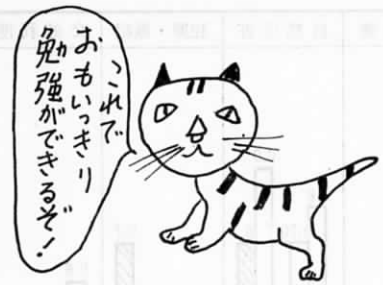 これで
おもいっきり
勉強ができるぞ!